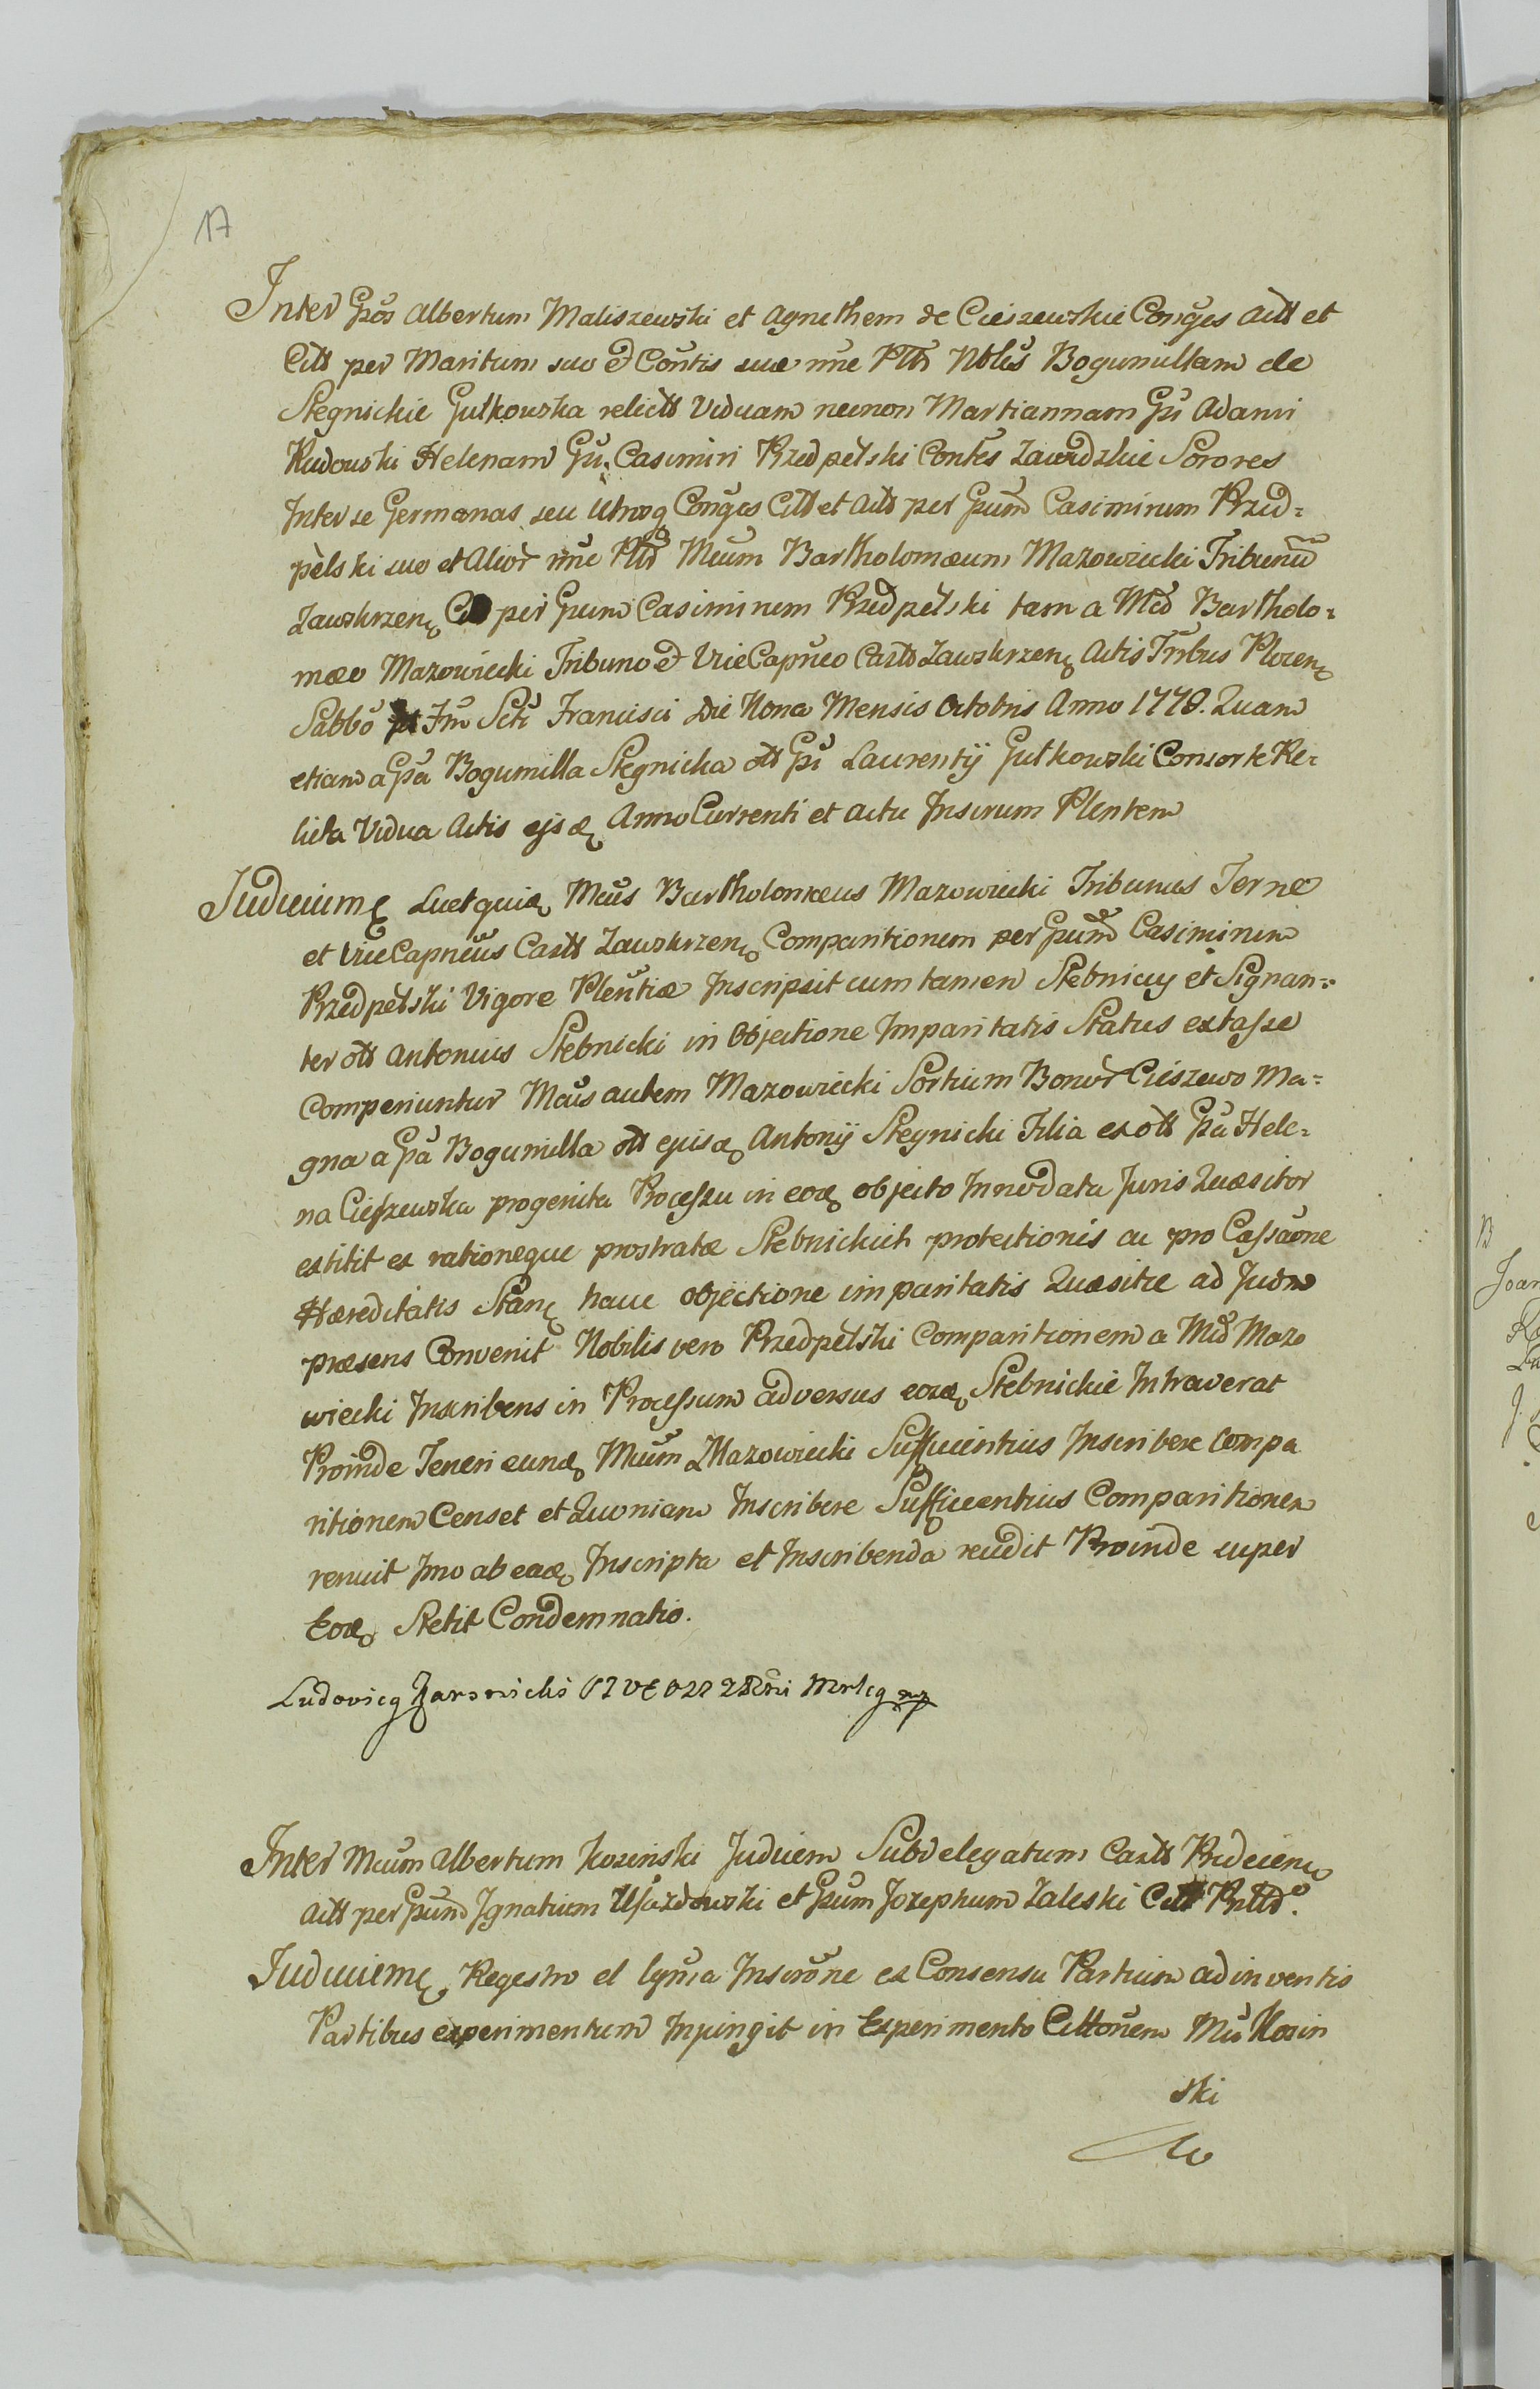 17
Inter Gsos Albertum Maliszewski et Agnethem de Cieszewskie Conges Actt et
Citt per Maritum suo et Contis suæ nne Pltt Nbles Bogumillam de
Stegnickie Gutkowska relictt Viduam necnon Martiannam Gsi Adami
Rudowski Helenam Gsi Casimiri Przedpełski Contes Zawidzkie Sorores
Inter se Germanas seu Utrosq Conges Citt et Actt per Gsum Casimirum Przed=
pełski suo et Alior nne Pltt Mcum Bartholomæum Mazowiecki Tribunū
Zawskrzenę per Gsum Casimirum Przedpełski tam a Mco Bartholo=
mæo Mazowiecki Tribuno et ViceCapneo Castt Zawskrzenę Actis Tribus Plocenę
Sabbo Fm Scti Francisci Die Nona Mensis Octobris Anno 1779. Quam
etiam a Gsa Bogumilla Stegnicka ott Gsi Laurentij Gutkowski Consorte Re=
licta Vidua Actis ejsdę Anno Currenti et Actu Inscrum Plentem
Judiciumę Licet quidę Mcus Bartholomeus Mazowiecki Tribunus Terrae
et ViceCapneus Castt Zawskrzenę Comparitionem per Gsum Casimirum
Przedpełski Vigore Plentiæ Inscripsit cum tamen Stebniccy et Signan=
ter ott Antonius Stebnicki in Objectione Imparitatis Status extasse
comperiuntur Mcus autem Mazowiecki Sortium Bonor Cieszewo Ma=
gna a Gsa Bogumilla ott ejusdę Antonij Stegnicki Filia ex ott Gsa Hele=
na Cieszewska progenita Processu in eodę objecto Innodata Juris Quæsitor
extitit ex rationeque prostratæ Stebnickich protectionis ac pro Cassaone
Hæreditatis Stanę hacce objectione imparitatis Quæsitæ ad Judm
præsens Convenit Nobilis vero Przedpełski Comparitionem a Mco Mazo
wiecki Inscribens in Processum adversus eosdę Stebnickie Intraverat
Proinde Teneri eundę Mcum Mazowiecki Sufficientius Inscribere Compa
ritionem Censet et Quoniam Inscribere Sufficientius Comparitionem
renuit Imo ab eadę Inscripta et Inscribenda recedit Proinde super
Eodę Stetit Condemnatio.
Ludovicq
Inter Mcum Albertum Kosinski Judicem Subdelegatum Castt Bidecienę
Actt per Gsum Ignatium Ujazdowski et Gsum Josephum Zaleski Citt
Judiciumę Regestro et Inscrone ex Consensu Partium adinventis
Partibus experimentum Injungit in Experimento Cittonem Mci Kosin
ski